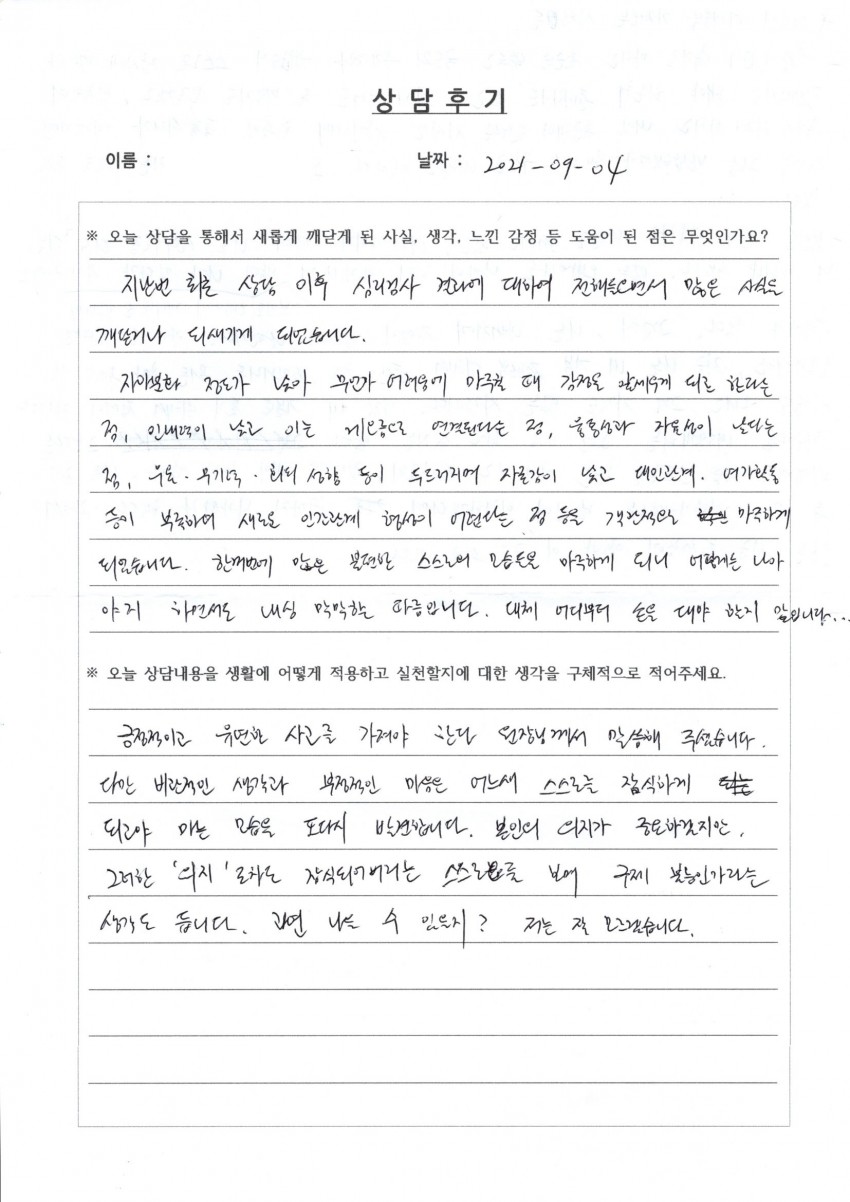 상담후기
이름 : 날짜 : 2021-09-04
※ 오늘 상담을 통해서 새롭게 깨닫게 된 사실, 생각, 느낀 감정 등 도움이 된 점은 무엇인가요?
지난번 최초 상담 이후 심리검사 결과에 대하여 전해들으면서 많은 사실을
깨닫거나 되새기게 되었습니다.
자아분화 정도가 낮아 무언가 어려움에 마주할 때 감정을 앞세우게 되곤 한다는
점, 인내력이 낮고 이는 게으름으로 연결된다는 점, 융통성과 자율성이 낮다는
점, 우울·무기력·회피 성향 등이 두드러지며 자존감이 낮고 대인관계·여가활동
등이 부족하며 새로운 인간관계 형성이 어렵다는 점 등을 객관적으로 마주하게
되었습니다. 한꺼번에 많은 불편한 스스로의 모습들을 마주하게 되니 어떻게든 나아
야지 하면서도 내심 막막할 따름입니다. 대체 어디부터 손을 대야 할지 말입니다...
※ 오늘 상담내용을 생활에 어떻게 적용하고 실천할지에 대한 생각을 구체적으로 적어주세요.
긍정적이고 유연한 사고를 가져야 한다 원장님께서 말씀해 주셨습니다.
다만 비관적인 생각과 부정적인 마음은 어느새 스스로를 잠식하게
되고야 마는 모습을 또다시 발견합니다. 본인의 의지가 중요하겠지만,
그러한 '의지'조차도 잠식되어버리는 스스로를 보며 구제 불능인가라는
생각도 듭니다. 과연 나을 수 있을지? 저는 잘 모르겠습니다.